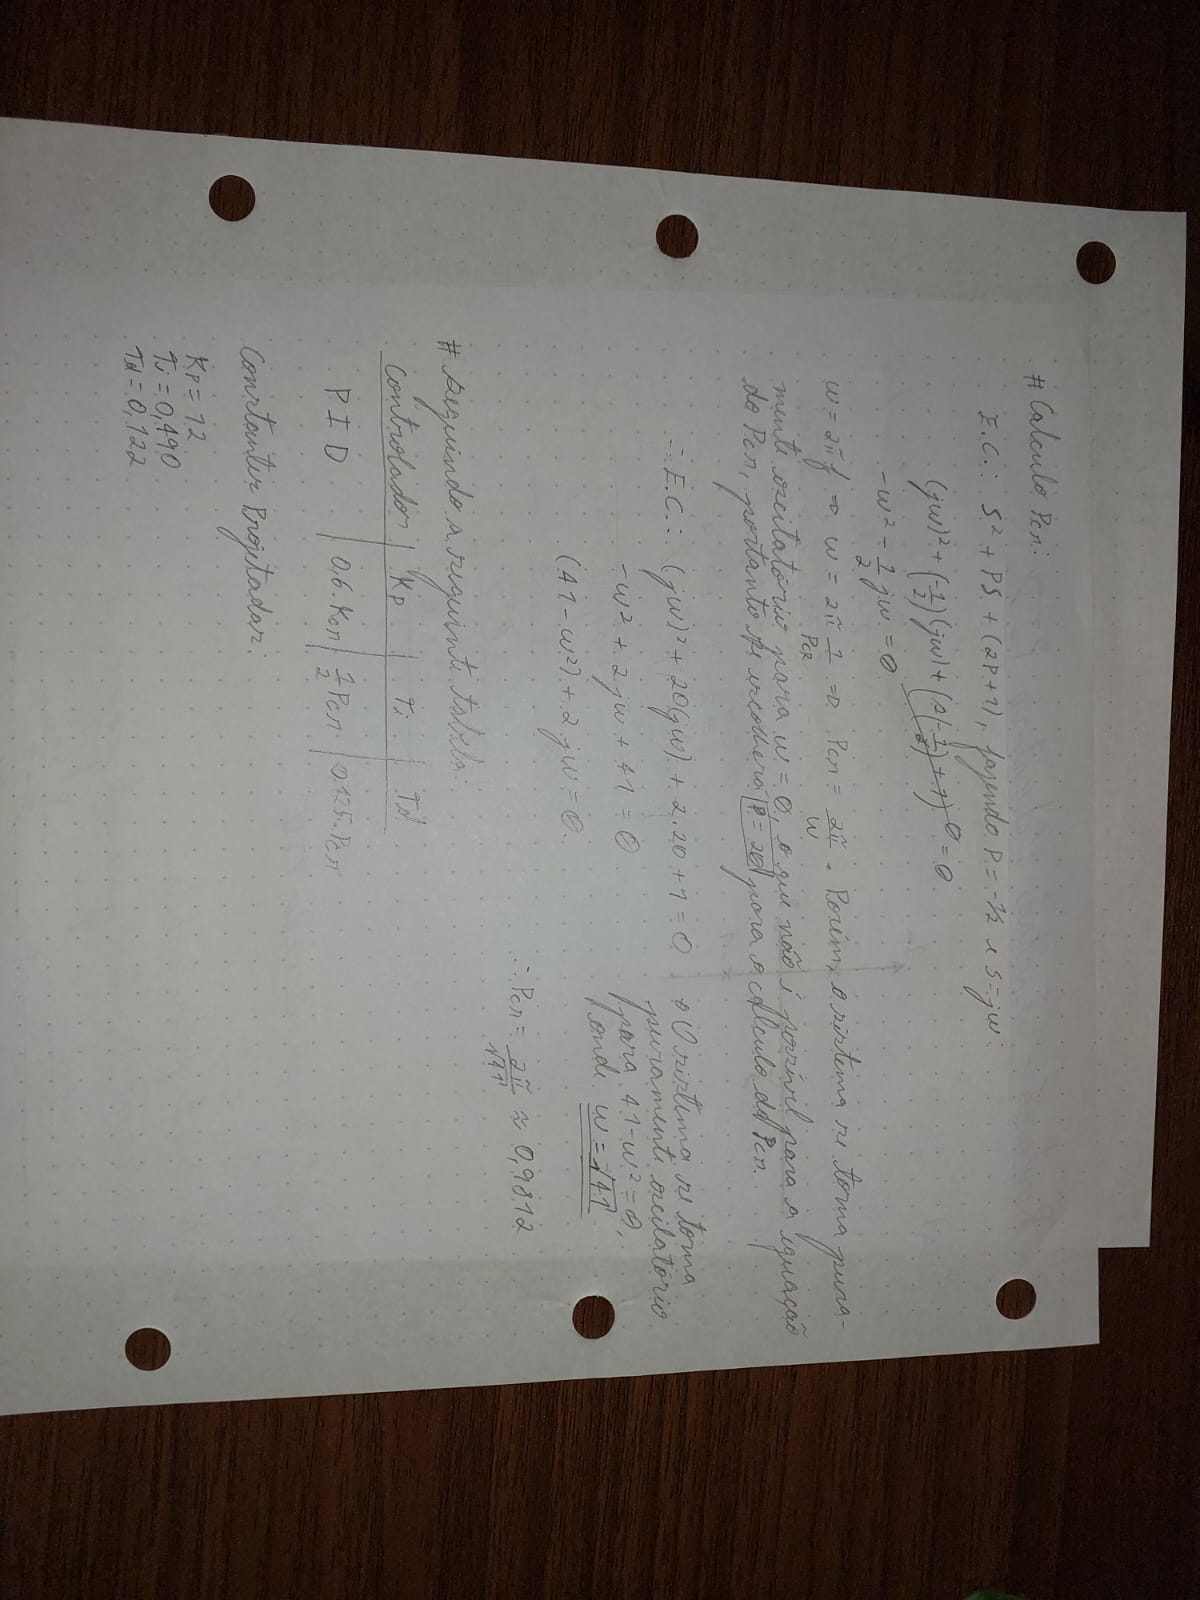 # Calculo Pcr:
E.C.: S² + PS + (2P+1), fazendo P = -1/2 e S = jw.
(jw)² + (-1/2)(jw) + (2(-1/2)+1) 0 = 0
-w² - 1/2 jw = 0
w = 2πf => w = 2π 1/Pcr => Pcr = 2π/w. Porém, o sistema se torna pura-
mente oscilatório para w = 0, o que não é possível para a equação
do Pcr, portanto se escolherá P = 20 para o cálculo do Pcr.
∴ E.C.: (jw)² + 20(jw) + 2.20 + 1 = 0
-w² + 2jw + 41 = 0
(41 - w²) + 2jw = 0.
O sistema se torna
puramente oscilatório
para 41 - w² = 0,
onde w = √41.
∴ Pcr = 2π/√41 ≈ 0,9812
# Seguindo a seguinte tabela:
Controlador | Kp | Ti | Td
PID | 0,6.Kcr | 1/2 Pcr | 0,125.Pcr
Constantes Projetadas:
Kp = 12
Ti = 0,490
Td = 0,122